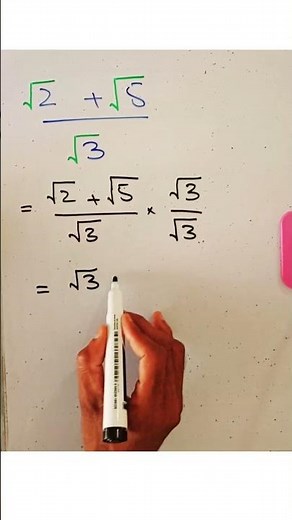 √2 + √5
√3
= √2 + √5 / √3 × √3 / √3
= √3